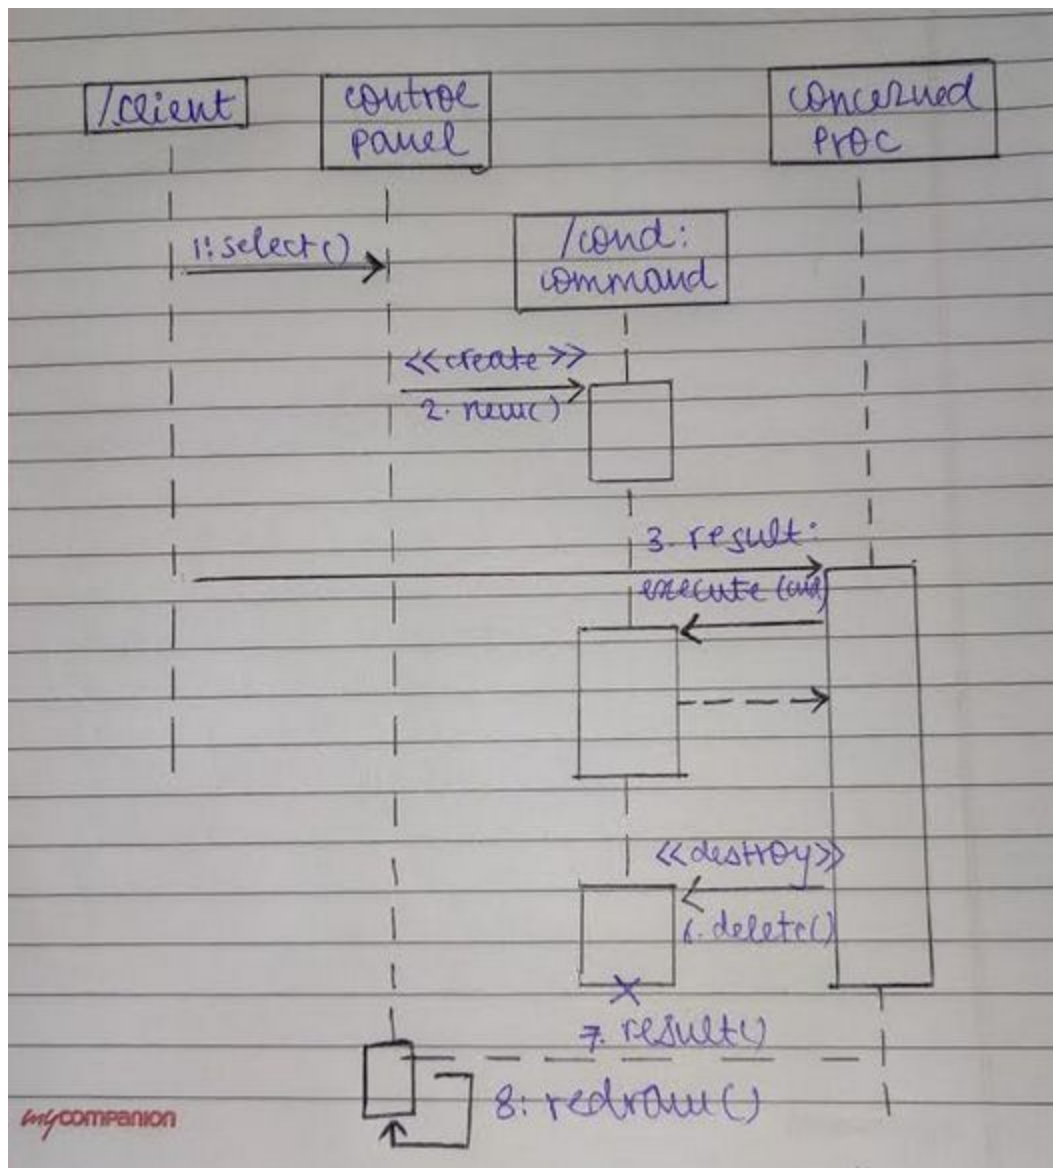 /client
control
panel
concerned
Proc
1: select()
/cond:
command
<<create>>
2. new()
3. result:
execute (cmd)
<<destroy>>
6. delete()
7. result()
8: redraw()
mycompanion